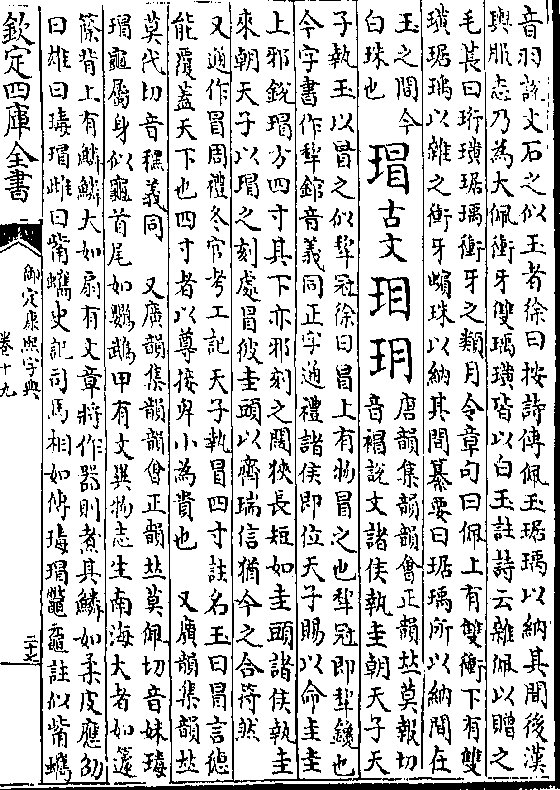 音羽說文石之似玉者徐曰按詩傳佩玉琚瑀以納其間後漢
輿服志乃為大佩衝牙雙瑀璜皆以白玉註詩云雜佩以贈之
毛萇曰珩璜琚瑀衝牙之類月令章句曰佩上有雙衡下有雙
璜琚瑀以雜之衝牙蠙珠以納其間纂要曰琚瑀所以納間在
玉之間今白珠也
瑁古文玥玬唐韻集韻韻會正韻𠀤莫報切音㡌說文諸侯執圭朝天子天
子執玉以冒之似犂冠徐曰冒上有物冒之也犂冠即犂鑱也
今字書作犂錧音義同正字通禮諸侯即位天子賜以命圭圭
上邪銳瑁方四寸其下亦邪刻之闊狹長短如圭頭諸侯執圭
來朝天子以瑁之刻處冒彼圭頭以齊瑞信猶今之合符然
又通作冒周禮冬官考工記天子執冒四寸註名玉曰冒言德
能覆葢天下也四寸者以尊接卑小為貴也 又廣韻集韻𠀤
莫代切音𥡆義同 又廣韻集韻韻會正韻𠀤莫佩切音妹瑇
瑁龜屬身似龜首尾如鸚鵡甲有文異物志生南海大者如籧
篨背上有鱗鱗大如扇有文章將作器則煮其鱗如柔皮應劭
曰雄曰瑇瑁雌曰觜蠵史記司馬相如傳瑇瑁鼈黿註似觜蠵
欽定四庫全書
御定康熙字典
卷十九